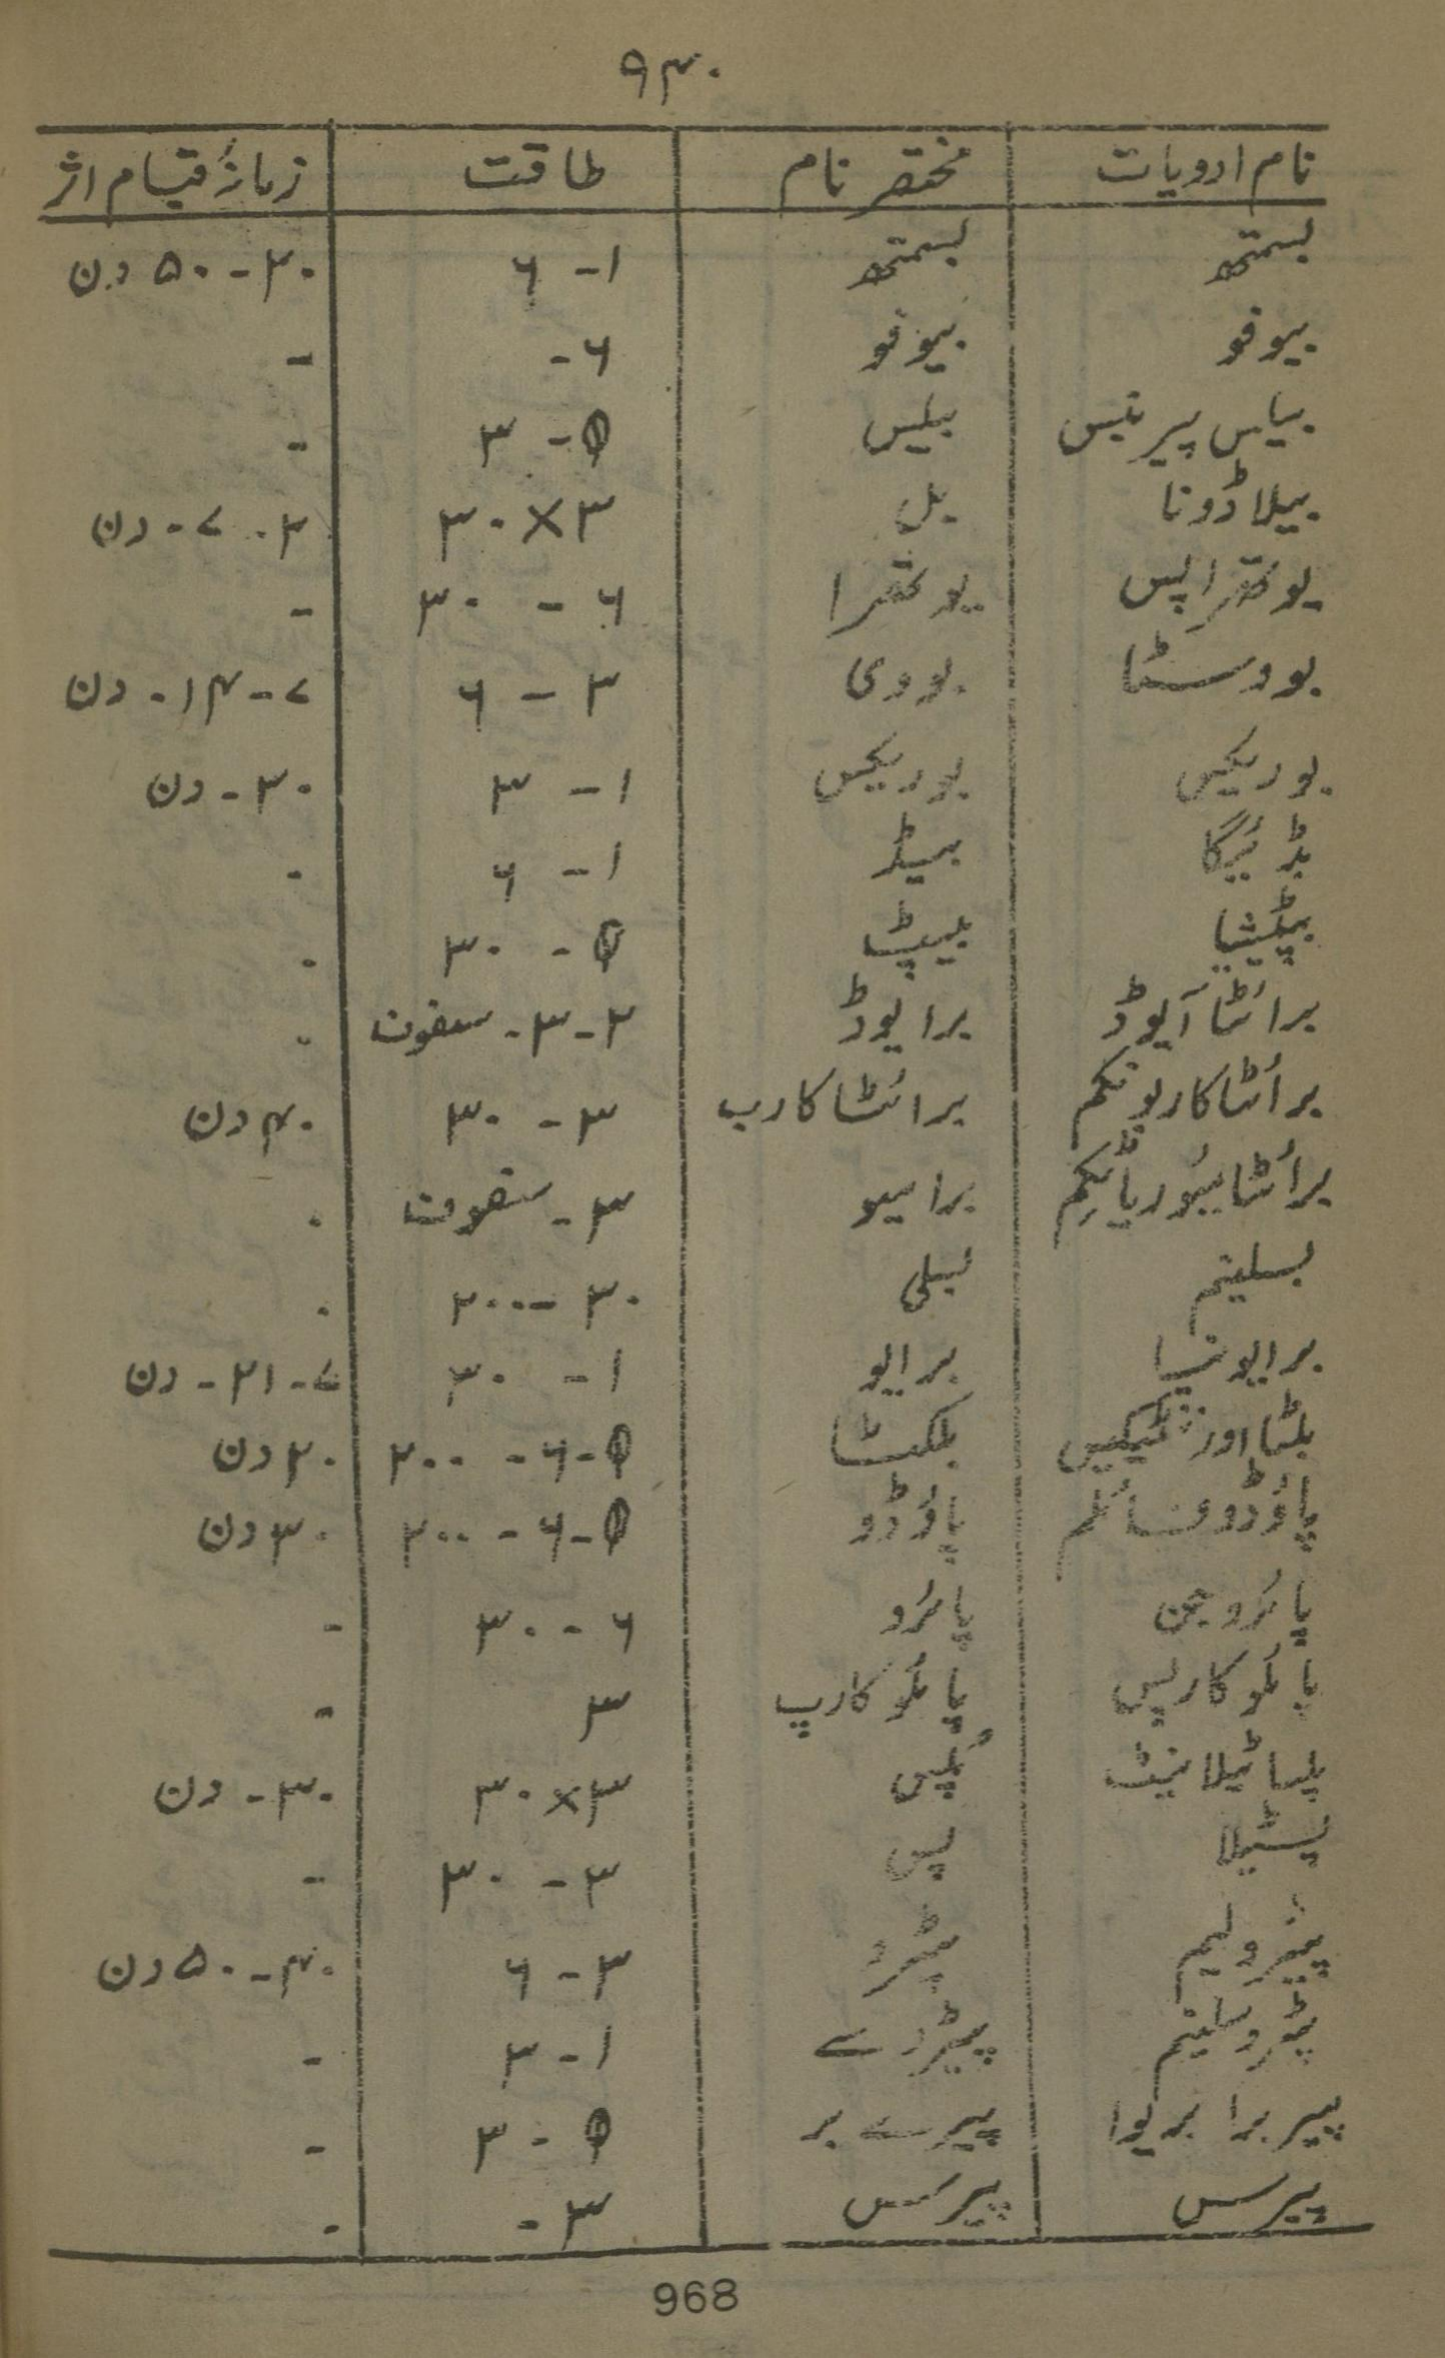 ۹۴۰
نام ادویات مختصر نام طاقت زمانۂ قیام اثر
بسمتھ بسمتھ ۱ - ۶ ۲۰ - ۵۰ دن
بیوفو بیوفو ۶ - -
بیلس پیرنیس بیلس Ø - ۳ -
بیلاڈونا بل ۳ × ۳۰ ۲ - ۷ - دن
بوتھراپس بوتھرا ۶ - ۳۰ -
بووسٹا بووی ۳ - ۶ ۷ - ۱۴ - دن
بوریکس بوریکس ۱ - ۳ ۳۰ - دن
بڈئیگا بیڈ ۱ - ۶ -
بپٹیشیا بیپٹ Ø - ۳۰ -
برائٹا آیوڈ برایوڈ ۲ - ۳ - سفوف -
برائٹا کاربونکم برائٹا کارب ۳ - ۳۰ ۴۰ دن
برائٹا میوریاٹیکم برامیو ۳ - سفوف -
بسلینم بسلی ۳۰ - ۲۰۰ -
برایونیا برایو ۱ - ۳۰ ۷ - ۲۱ - دن
بلٹا اورنٹیکیس بلکٹا Ø - ۶ - ۲۰۰ ۲۰ دن
پاؤڈوفائلم پاؤڈو Ø - ۶ - ۲۰۰ ۳۰ دن
پائروجن پائرو ۶ - ۳۰ -
پائلوکارپس پائلوکارپ ۳ -
پلساٹیلا نیٹ پلس ۳ × ۳۰ ۳۰ - دن
پسٹیلا پس ۳ - ۳۰ -
پیٹرولیم پیٹرو ۳ - ۶ ۴۰ - ۵۰ دن
پٹروسلینم پیٹروسے ۱ - ۳ -
پیربرا بریوا پیرے بر Ø - ۳ -
پیرس پیرس ۳ - -
968